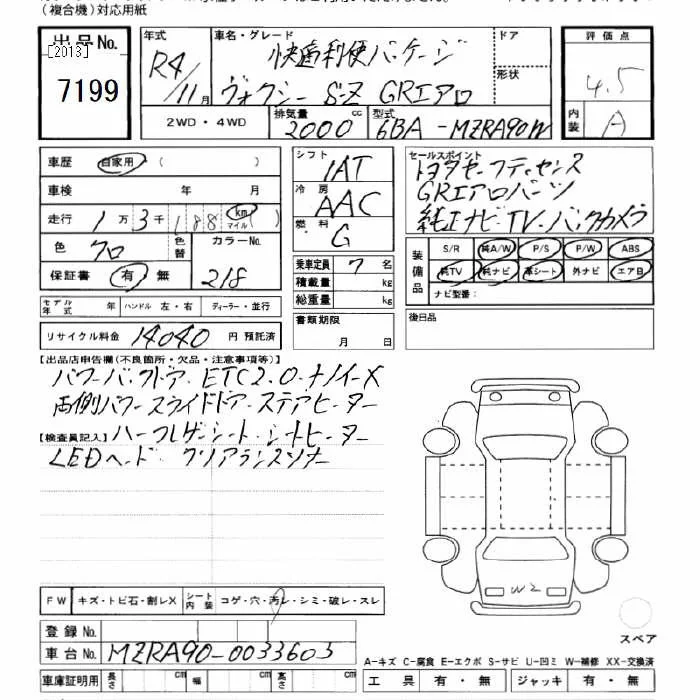 (複合機)対応用紙
出品No.
[2013]
7199
年式
R4/11月
車名・グレード
快適利便パッケージ
ヴォクシー S-Z GRエアロ
ドア
形状
2WD・4WD
排気量
2000cc
型式
6BA-MZRA90W
評価点
4.5
内装
A
車歴 自家用 ( )
車検 年 月
走行 1万3千188 km マイル ( )
色 クロ 色替 カラーNo. 218
保証書 有・無
モデル年式 年 ハンドル 左・右 ディーラー・並行
リサイクル料金 14040 円 預託済
シフト IAT
冷房 AAC
燃料 G
乗車定員 7 名
積載量 kg
総重量 kg
書類期限
月 日
セールスポイント
トヨタセーフティセンス
GRエアロパーツ
純正ナビ・TV・バックカメラ
装備品
S/R 純A/W P/S P/W ABS
純TV 純ナビ 革シート 外ナビ エアB
ナビ型番:
後日品
【出品店申告欄(不良箇所・欠品・注意事項等)】
パワーバックドア・ETC2.0・ナノイーX
両側パワースライドドア・ステアヒーター
【検査員記入】ハーフレザーシート・シートヒーター
LEDヘッド・クリアランスソナー
W2
スペア
FW キズ・トビ石・割レX シート内装 コゲ・穴・汚レ・シミ・破レ・スレ
登録No.
車台No. MZRA90-0033603
車庫証明用 長さ cm 幅 cm 高さ cm
A-キズ C-腐食 E-エクボ S-サビ U-凹ミ W-補修 XX-交換済
工具 有・無 ジャッキ 有・無